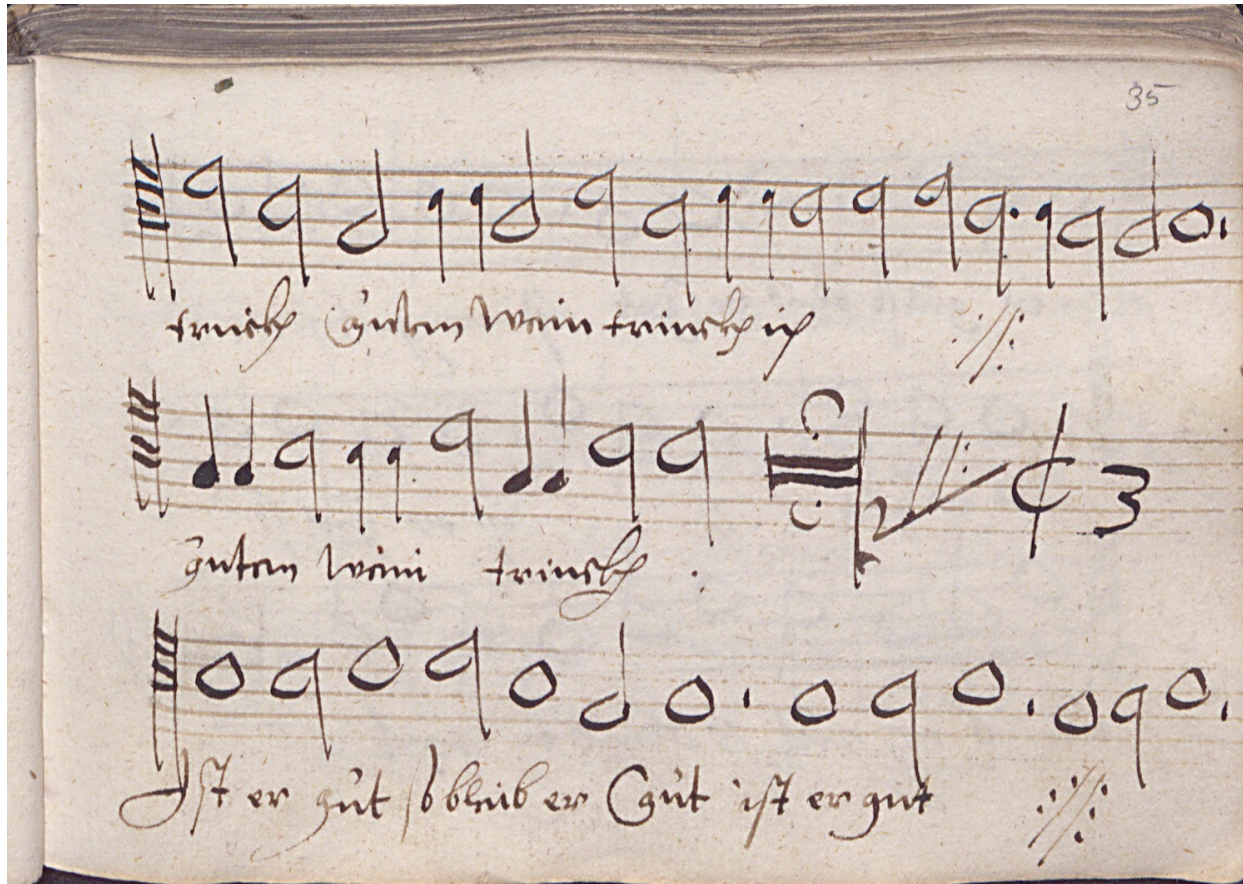 35
trinckh Guten Wein trinckh ich
3
guten Wein trinckh
Ist er gut so bleib er Gut ist er gut